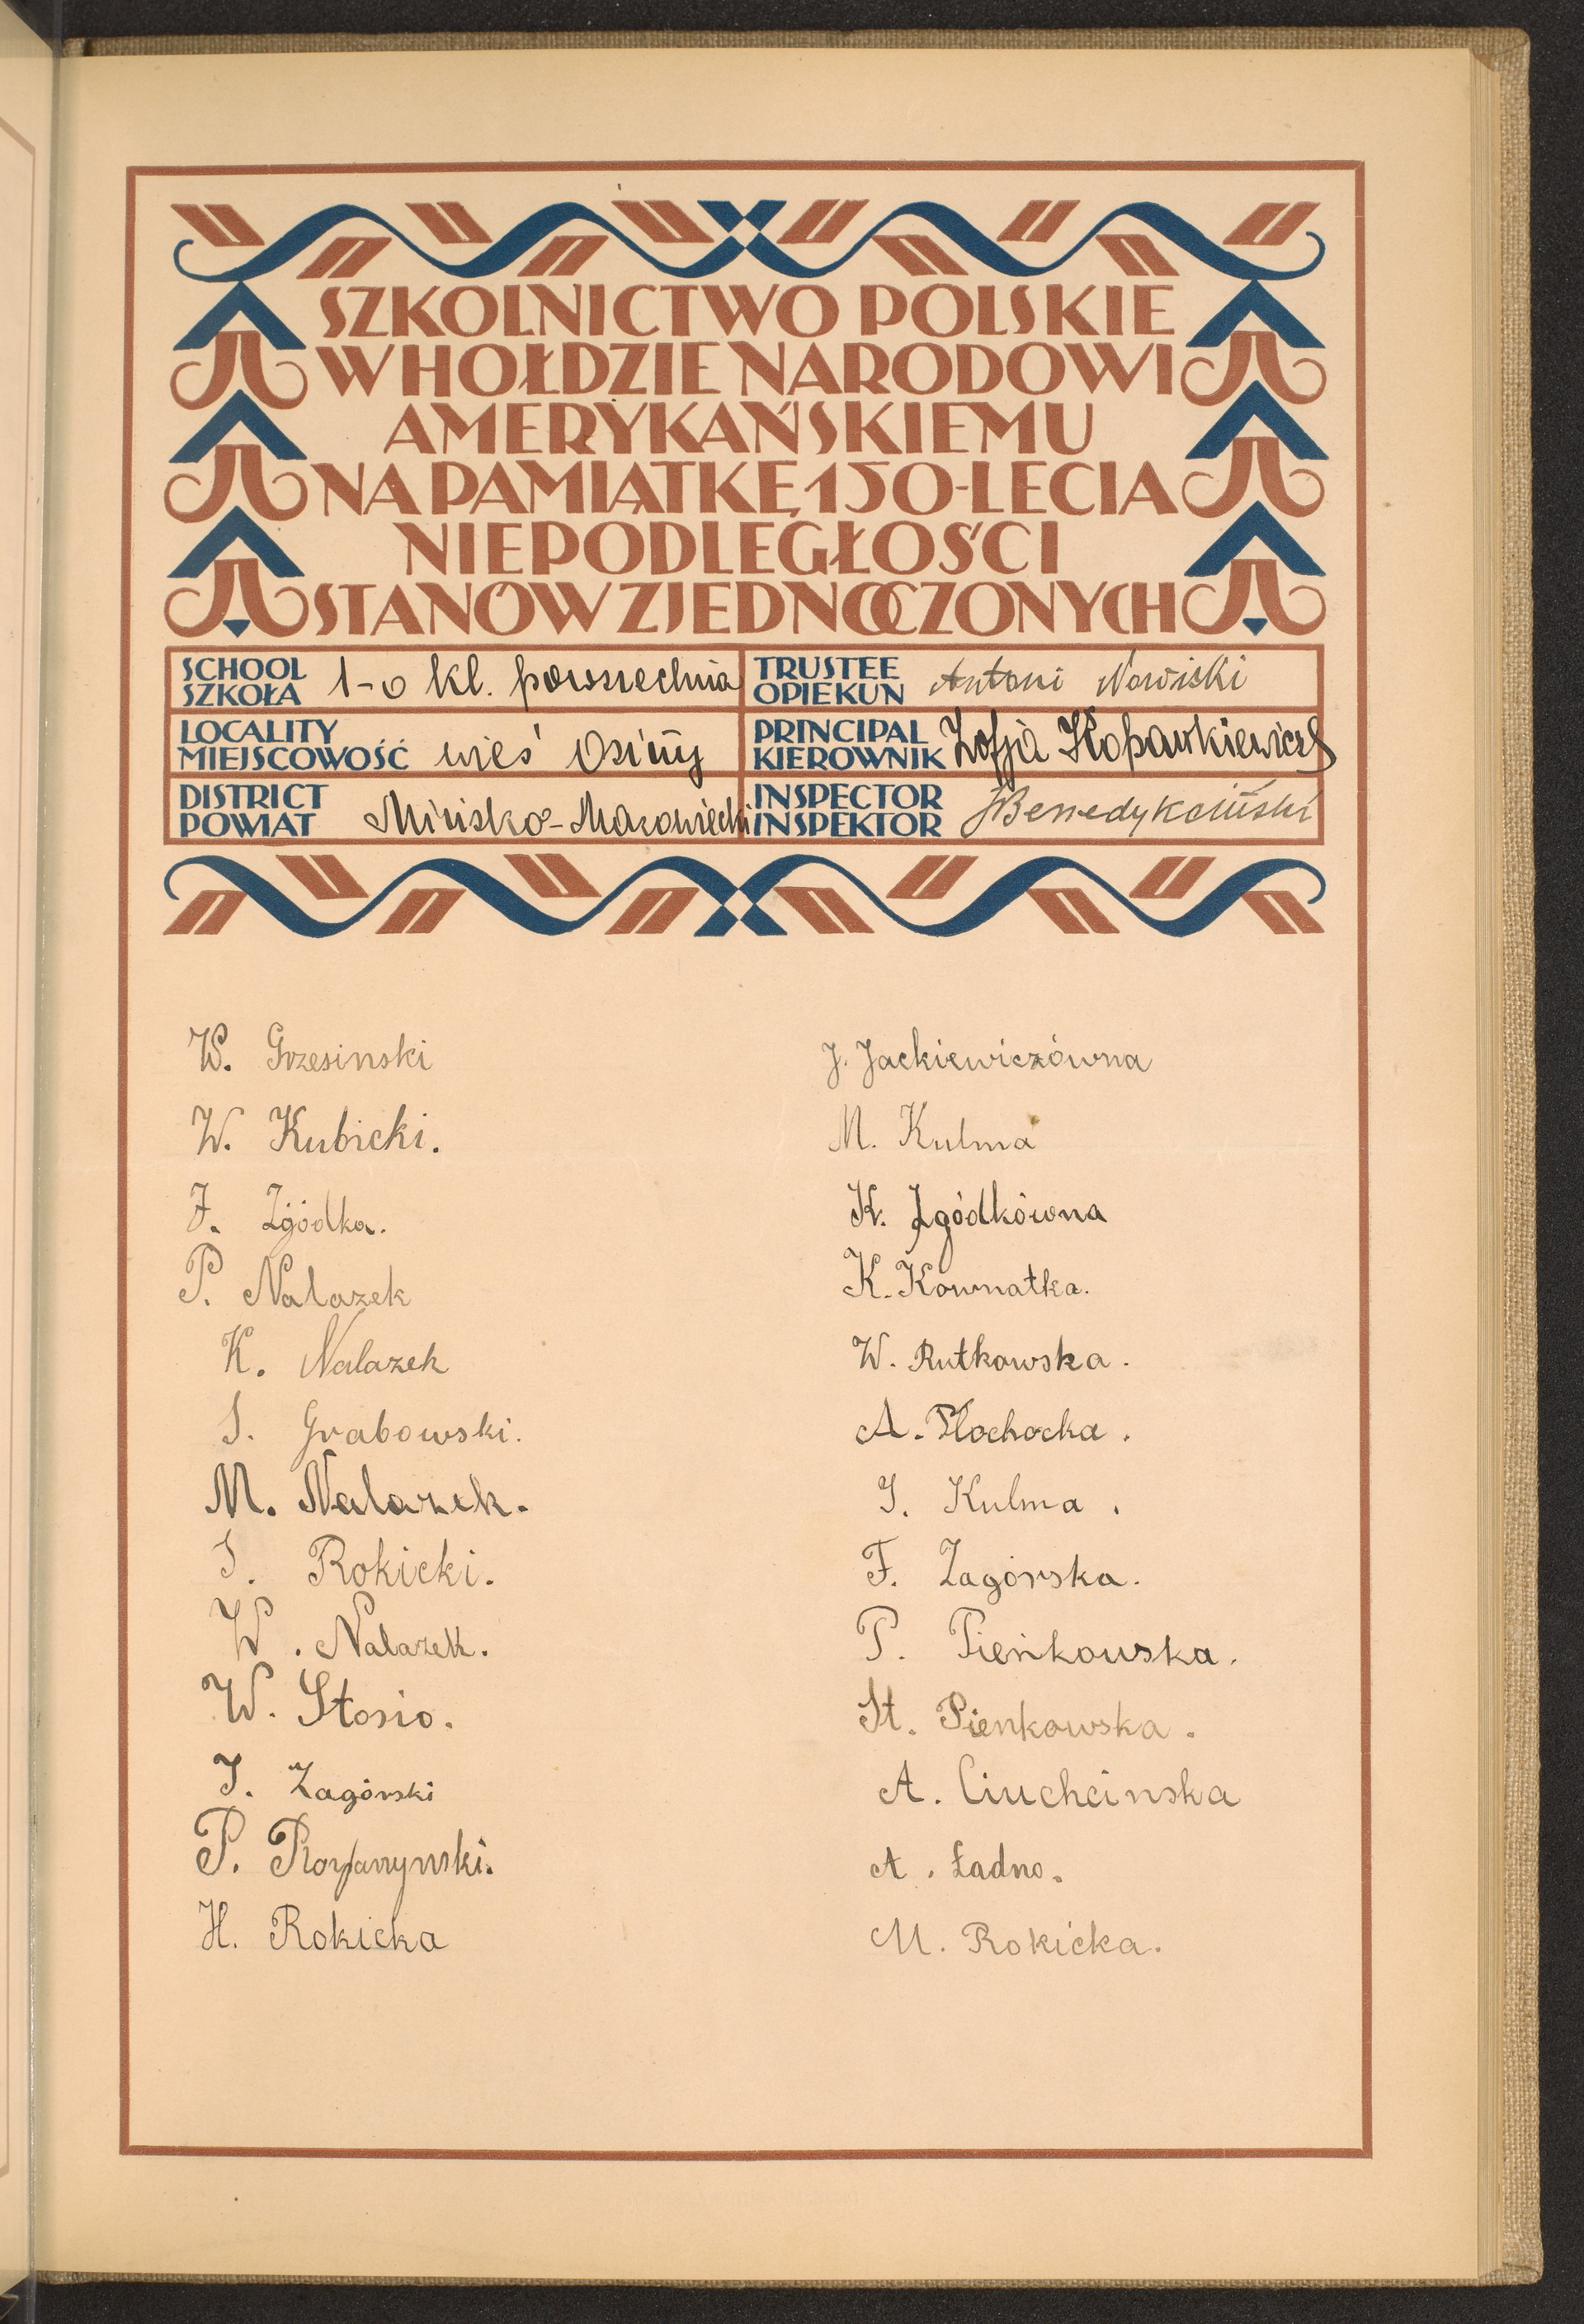 SZKOLNICTWO POLSKIE
W HOŁDZIE NARODOWI
AMERYKAŃSKIEMU
NA PAMIĄTKĘ 150-LECIA
NIEPODLEGŁOŚCI
STANÓW ZJEDNOCZONYCH
SCHOOL
SZKOŁA 1-o kl. powszechna
TRUSTEE
OPIEKUN Antoni Nowiski
LOCALITY
MIEJSCOWOŚĆ wieś Osiny
PRINCIPAL
KIEROWNIK Zofja
DISTRICT
POWIAT Mińsko-Mazowiecki
INSPECTOR
INSPEKTOR
W. Grzesinski
W. Kubicki.
J. Zgódka.
P. Nalazek
K. Nalazek
S. Grabowski.
M. Nalazek.
S. Rokicki.
W. Nalazek.
W. Stosio.
J. Zagórski
P.
H. Rokicka
J. Jackiewiczówna
M. Kulma
K. Zgódkówna
K. Kownatka.
W. Rutkowska.
A. Płochocka.
J. Kulma.
F. Zagórska.
P. Pieńkowska.
St. Pienkowska.
A. Ciuchcinska
A. Ładno.
M. Rokicka.